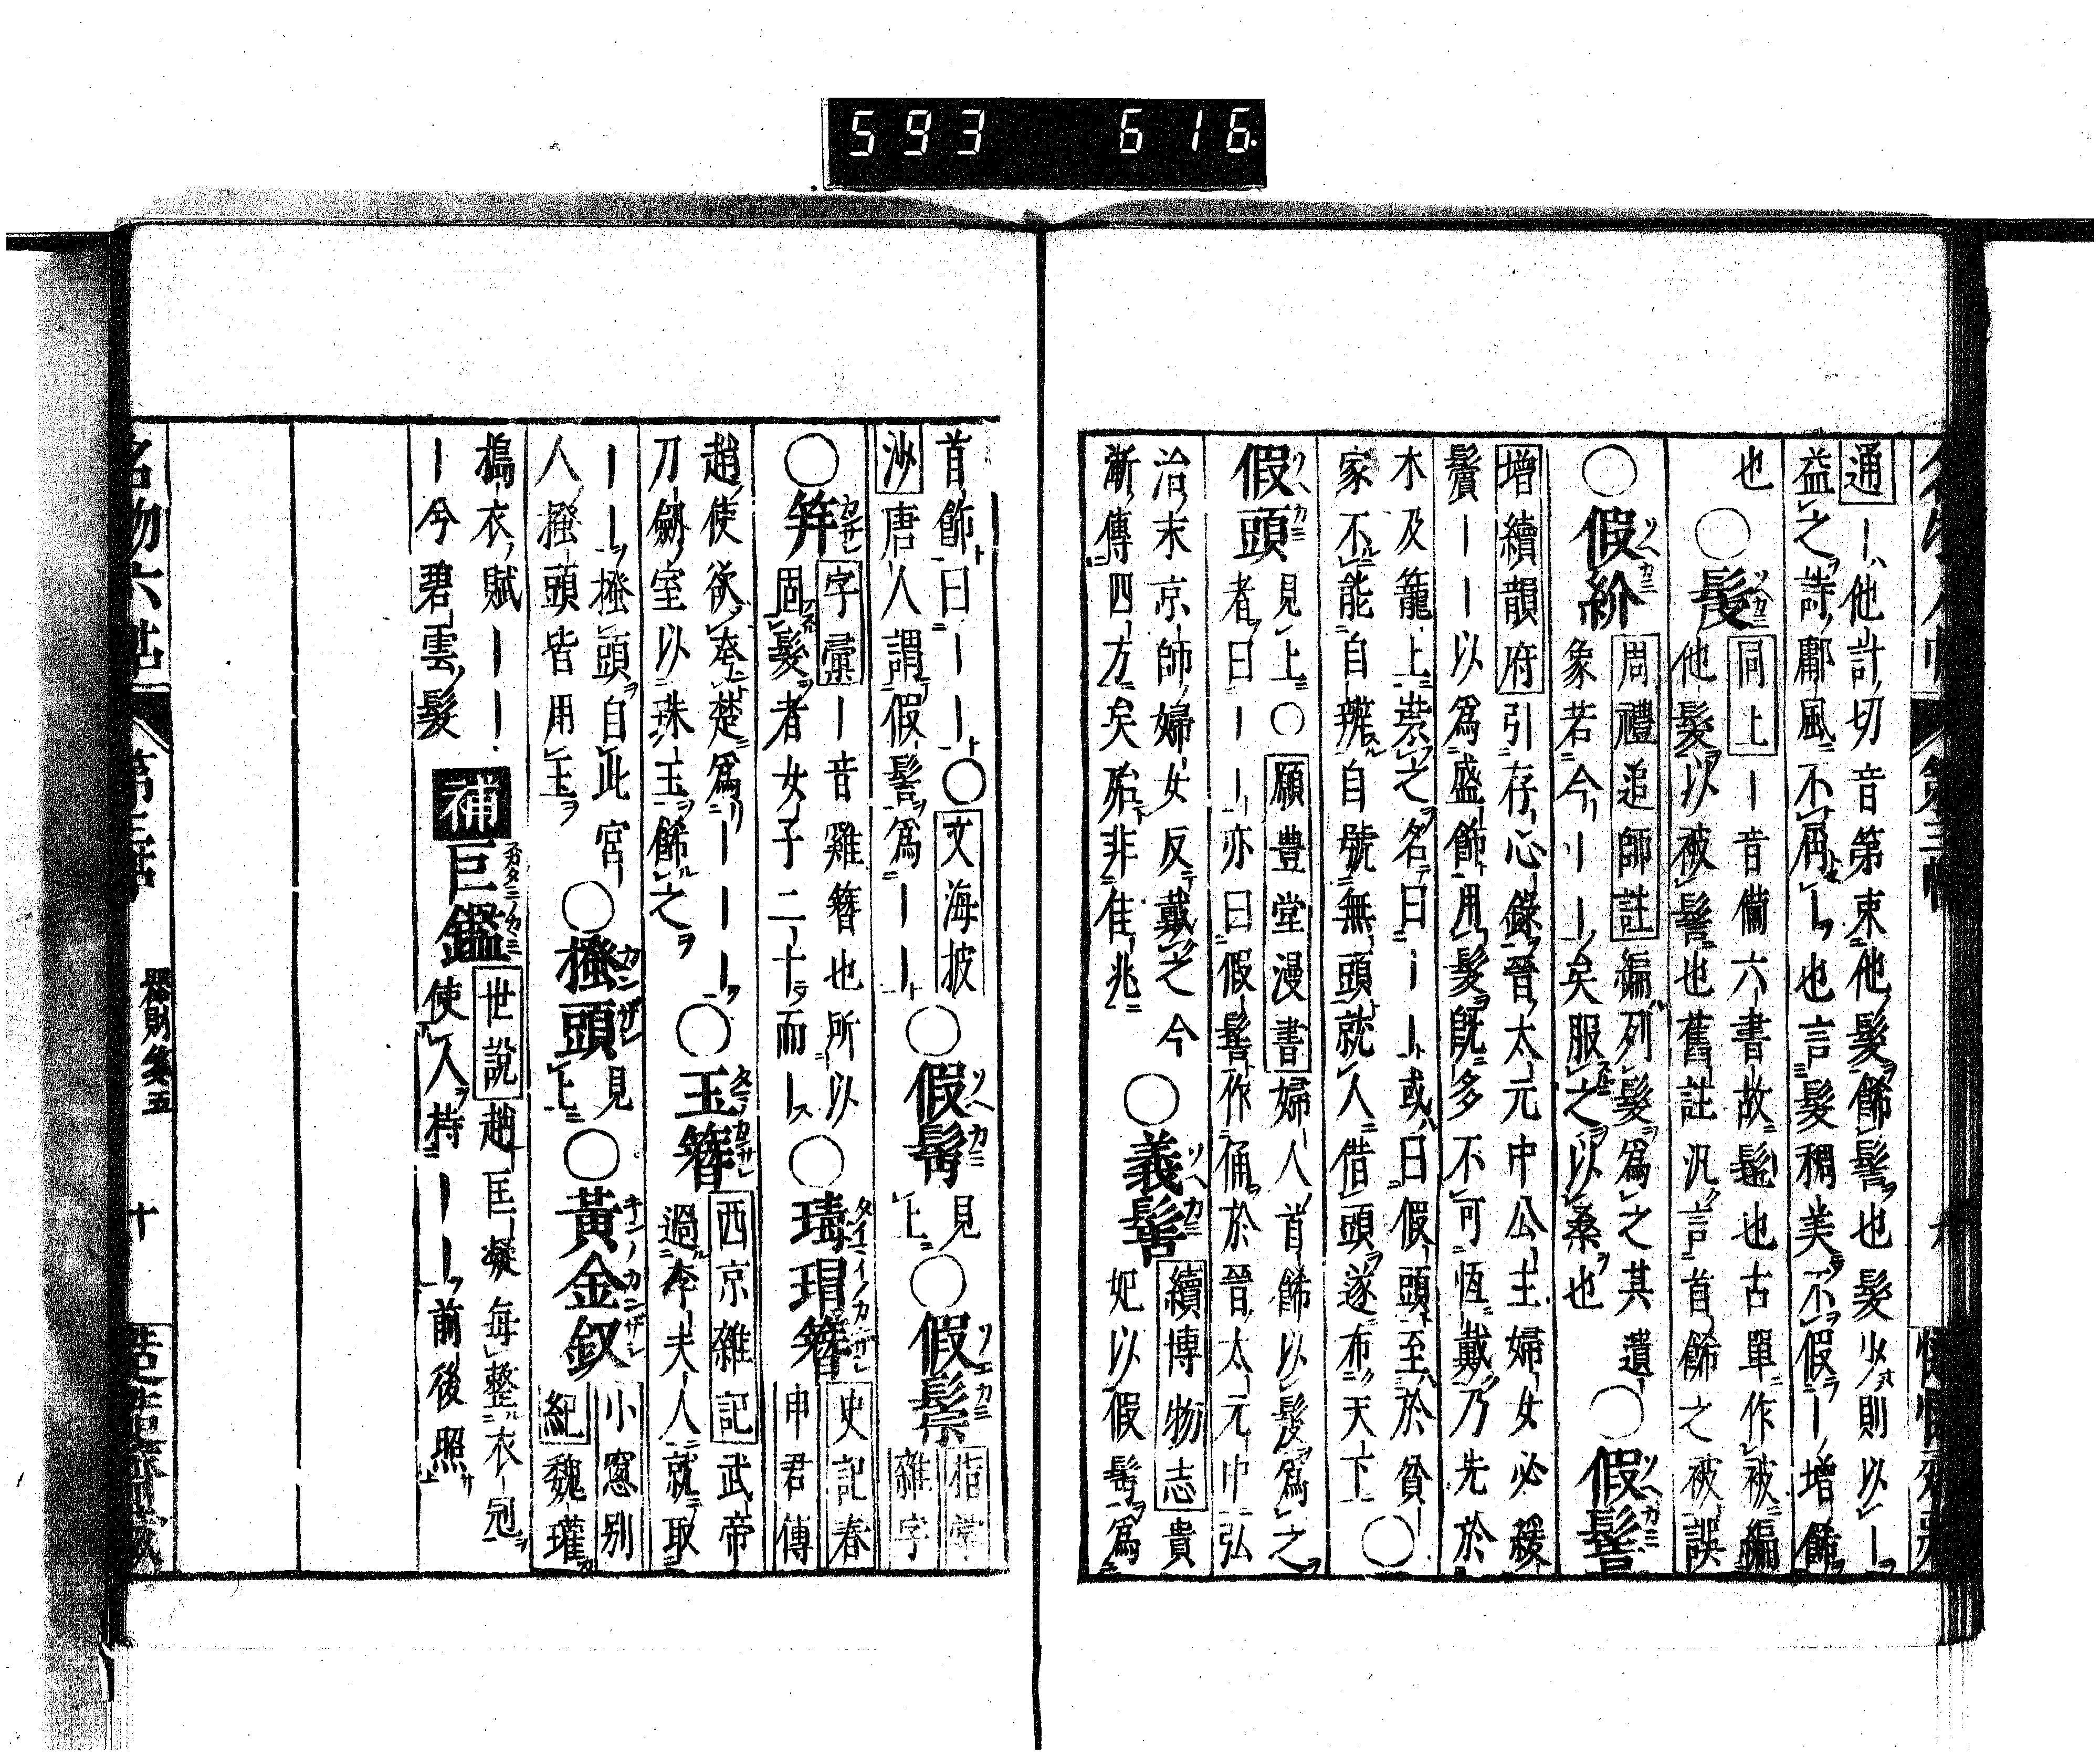 593 616
通｜他計切音第束他髮飾髻也髮少則以｜
益之詩鄘風不屑｜也言髮稠美不假｜增飾
也○髲同上｜音備六書故髢也古單作被編
他髮以被髻也舊註汎言首飾之被誤
○假紒周禮追師註編列髮爲之其遺
象若今｜｜矣服之以桑也○假髻
增續韻府引存心錄晉太元中公主婦女必緩
鬢｜｜以爲盛飾用髮既多不可恆戴乃先於
木及籠上裝之名曰｜｜或曰假頭至於貧
家不能自辦自號無頭就人借頭遂布天下○
假頭見上○願豊堂漫書婦人首飾以髮爲之
者曰｜｜亦曰假髻作俑於晉太元中弘
治末京師婦女反戴之今
漸傳四方矣殆非佳兆○義髻續博物志貴
妃以假髻爲
首飾曰｜｜○文海披
沙唐人謂假髻爲｜｜○假髻見上○假鬃指掌
雜字
○笄字彙｜音雞簪也所以
固髮者女子二十而｜○瑇瑁簪史記春
申君傳
趙使欲夸楚爲｜｜｜
刀劍室以珠玉飾之○玉簪西京雜記武帝
過李夫人就取
｜｜搔頭自此宮
人搔頭皆用玉○搔頭見上○黃金釵小窓別
紀魏瓘
搗衣賦｜｜｜
｜兮碧雲髮補巨鑑世說趙匡凝每整衣冠
使人持｜｜前後照
名物六帖 第三帖 器財箋五 十